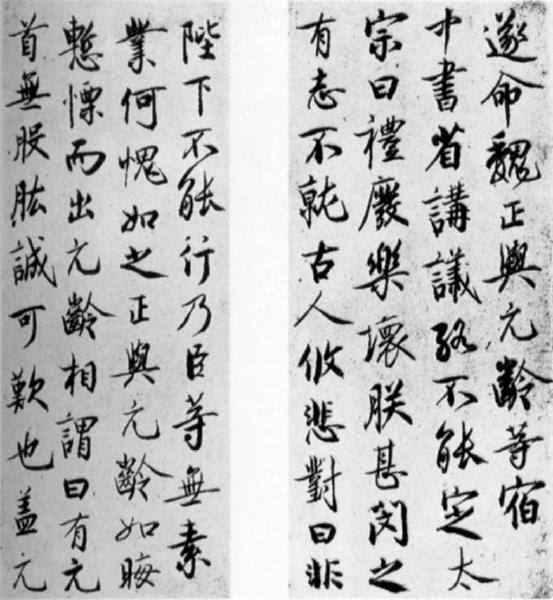 遂命魏正與元齡等宿
中書省講議終不能定太
宗曰禮廢樂壞朕甚閔之
有志不就古人攸悲對曰非
陛下不能行乃臣等無素
業何愧如之正與元齡如晦
慙慄而出元齡相謂曰有元
首無股肱誠可歎也盖元